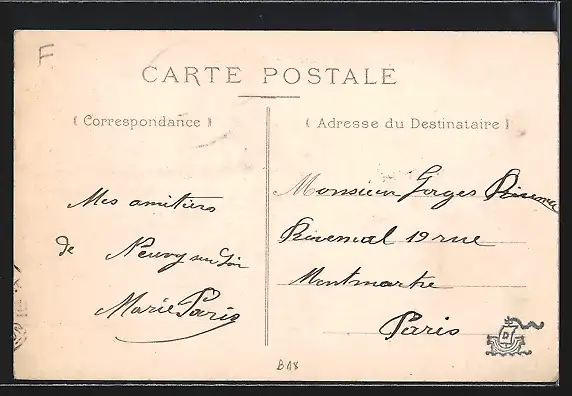 F
CARTE POSTALE
( Correspondance )
( Adresse du Destinataire )
Mes amitiers
de Neuvy sur Loir
Marie Paris
Monsieur Gorges
19 rue
Montmartre
Paris
D
B18